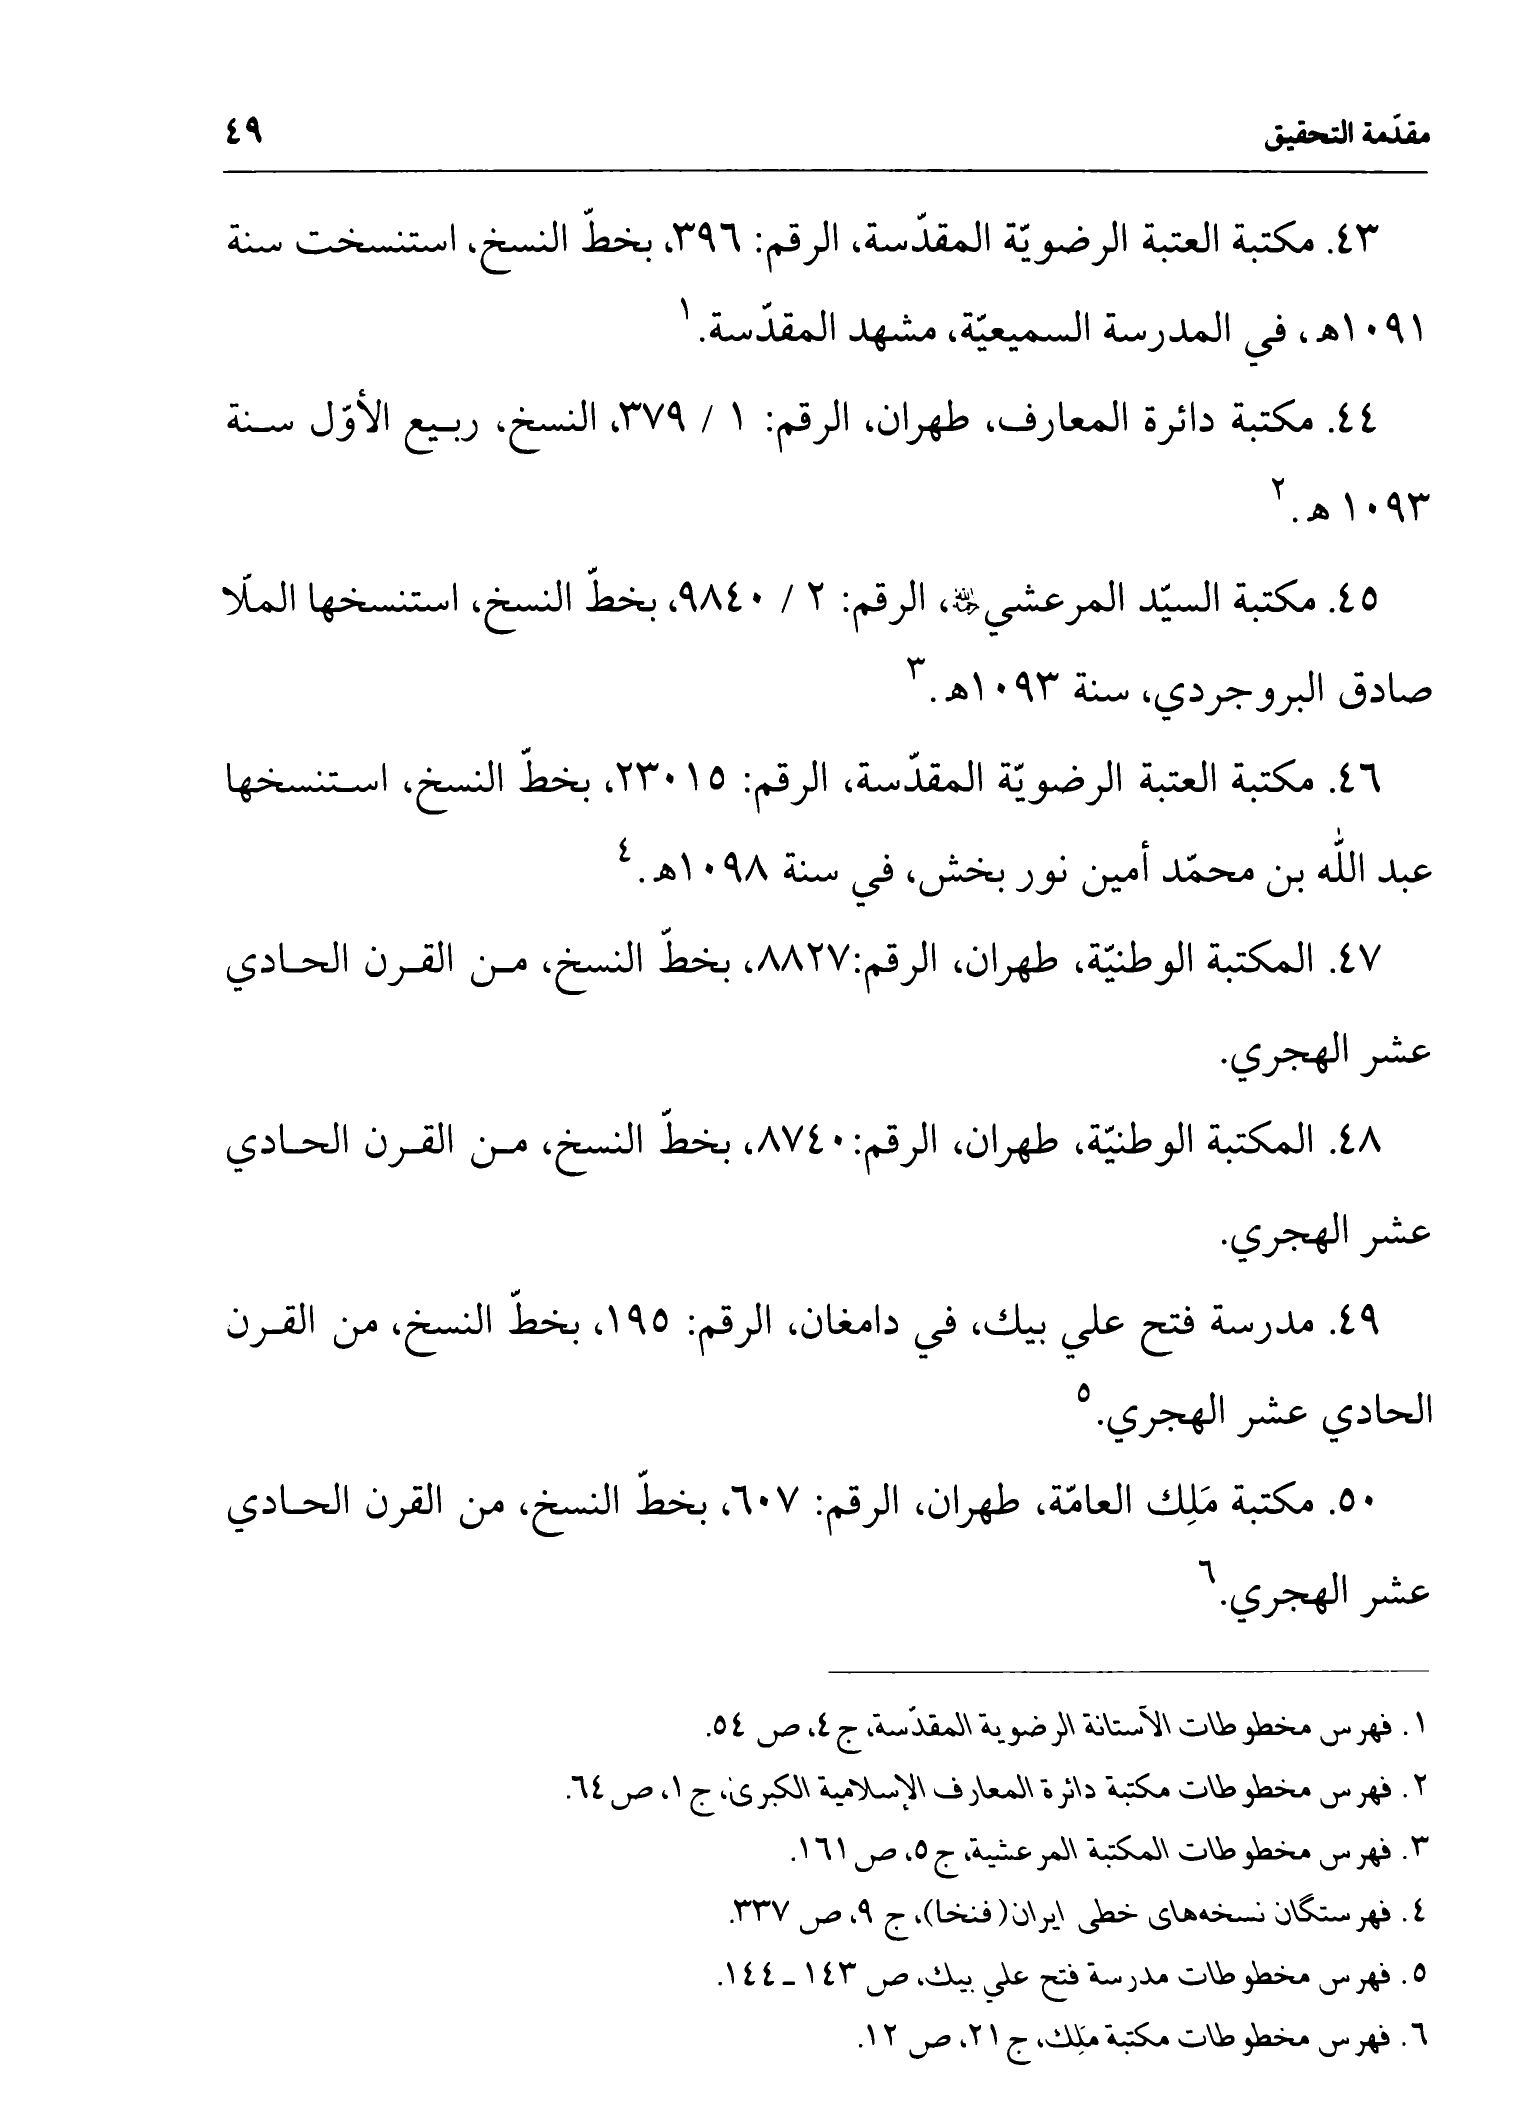 مقدّمة التحقيق ٤٩
٤٣. مكتبة العتبة الرضويّة المقدّسة، الرقم: ٣٩٦، بخطّ النسخ، استنسخت سنة
١٠٩١هـ، في المدرسة السميعيّة، مشهد المقدّسة.١
٤٤. مكتبة دائرة المعارف، طهران، الرقم: ١ / ٣٧٩، النسخ، ربيع الأوّل سنة
١٠٩٣ هـ.٢
٤٥. مكتبة السيّد المرعشي، الرقم: ٢ / ٩٨٤٠، بخطّ النسخ، استنسخها الملّا
صادق البروجردي، سنة ١٠٩٣هـ.٣
٤٦. مكتبة العتبة الرضويّة المقدّسة، الرقم: ٢٣٠١٥، بخطّ النسخ، استنسخها
عبد الله بن محمّد أمين نور بخش، في سنة ١٠٩٨هـ.٤
٤٧. المكتبة الوطنيّة، طهران، الرقم:٨٨٢٧، بخطّ النسخ، من القرن الحادي
عشر الهجري.
٤٨. المكتبة الوطنيّة، طهران، الرقم:٨٧٤٠، بخطّ النسخ، من القرن الحادي
عشر الهجري.
٤٩. مدرسة فتح علي بيك، في دامغان، الرقم: ١٩٥، بخطّ النسخ، من القرن
الحادي عشر الهجري.٥
٥٠. مكتبة مَلِك العامّة، طهران، الرقم: ٦٠٧، بخطّ النسخ، من القرن الحادي
عشر الهجري.٦
١. فهرس مخطوطات الآستانة الرضوية المقدّسة، ج٤، ص ٥٤.
٢. فهرس مخطوطات مكتبة دائرة المعارف الإسلامية الكبرى، ج١، ص٦٤.
٣. فهرس مخطوطات المكتبة المرعشية، ج٥، ص١٦١.
٤. فهرستگان نسخه‌های خطی ایران(فنخا)، ج ٩، ص ٣٣٧.
٥. فهرس مخطوطات مدرسة فتح علي بيك، ص ١٤٣ ـ ١٤٤.
٦. فهرس مخطوطات مكتبة مَلِك، ج٢١، ص ١٢.